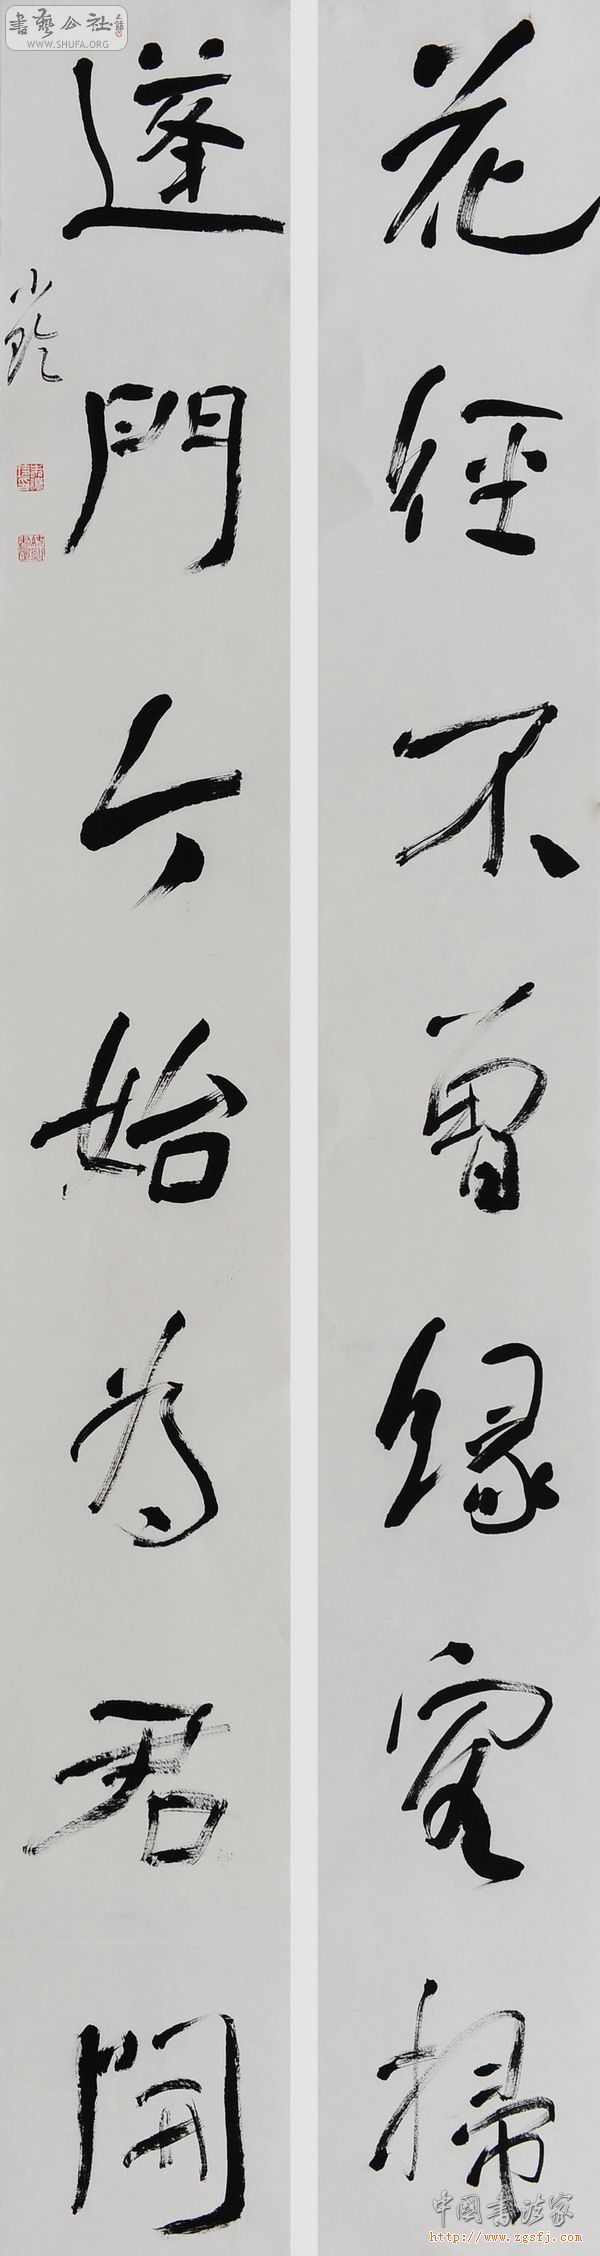 花徑不曾緣客掃
蓬門今始為君開
書藝公社
WWW.SHUFA.ORG
中國書法家
http://www.zgsfj.com